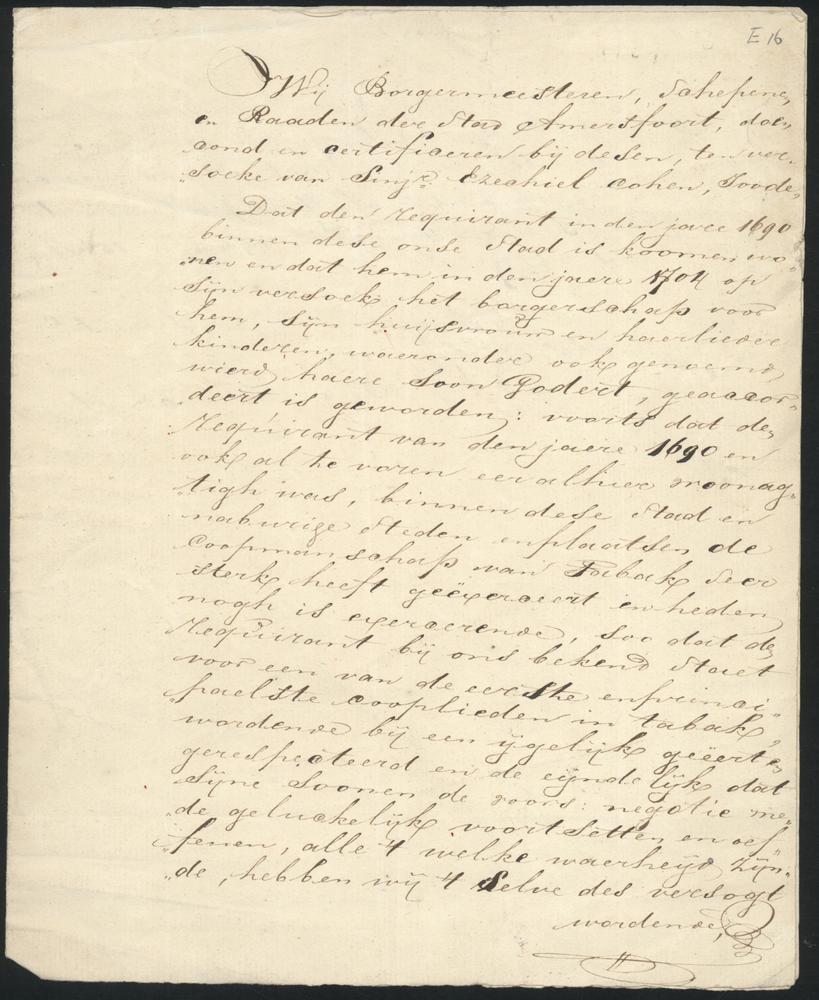 E 16
Wij Borgermeesteren, Schepene,
en Raaden der Stad Amersfoort, doen
cond en certificeeren bij desen, ten ver-
„soeke van Sinjr. Ezechiel Cohen, Joode,
Dat den requirant in den jare 1690
binnen dese onse Stad is koomen wo-
„nen en dat hem in den jaere 1704 op
sijn versoek het borgerschap voor
hem, sijn huijsvrouw en haerlieder
kinderen, waeronder ook genoemd
wierd haere Soon Godert, geaccor-
deert is geworden: voorts dat de
requirant van den jaere 1690 en
ook al te voren eer alhier woonag-
„tigh was, binnen dese Stad en
naburige Steden enplaatsen de
Coopmanschap van Tabak Seer
sterk heeft geëxerceert en heden
nogh is exercerende, soo dat de
requirant bij ons bekend Staet
voor een van de eerste enprinci„
paelste cooplieden in tabak,
wordende bij een ijgelijk geëert en
gerespecteerd en de eijndelijk dat
sijne Soonen de voors: negotie me„
„de geluckelijk voortsetten en oef„
„fenen, alle 't welke waerheijd zijn„
„de, hebben wij 't selve des versogt
wordende,